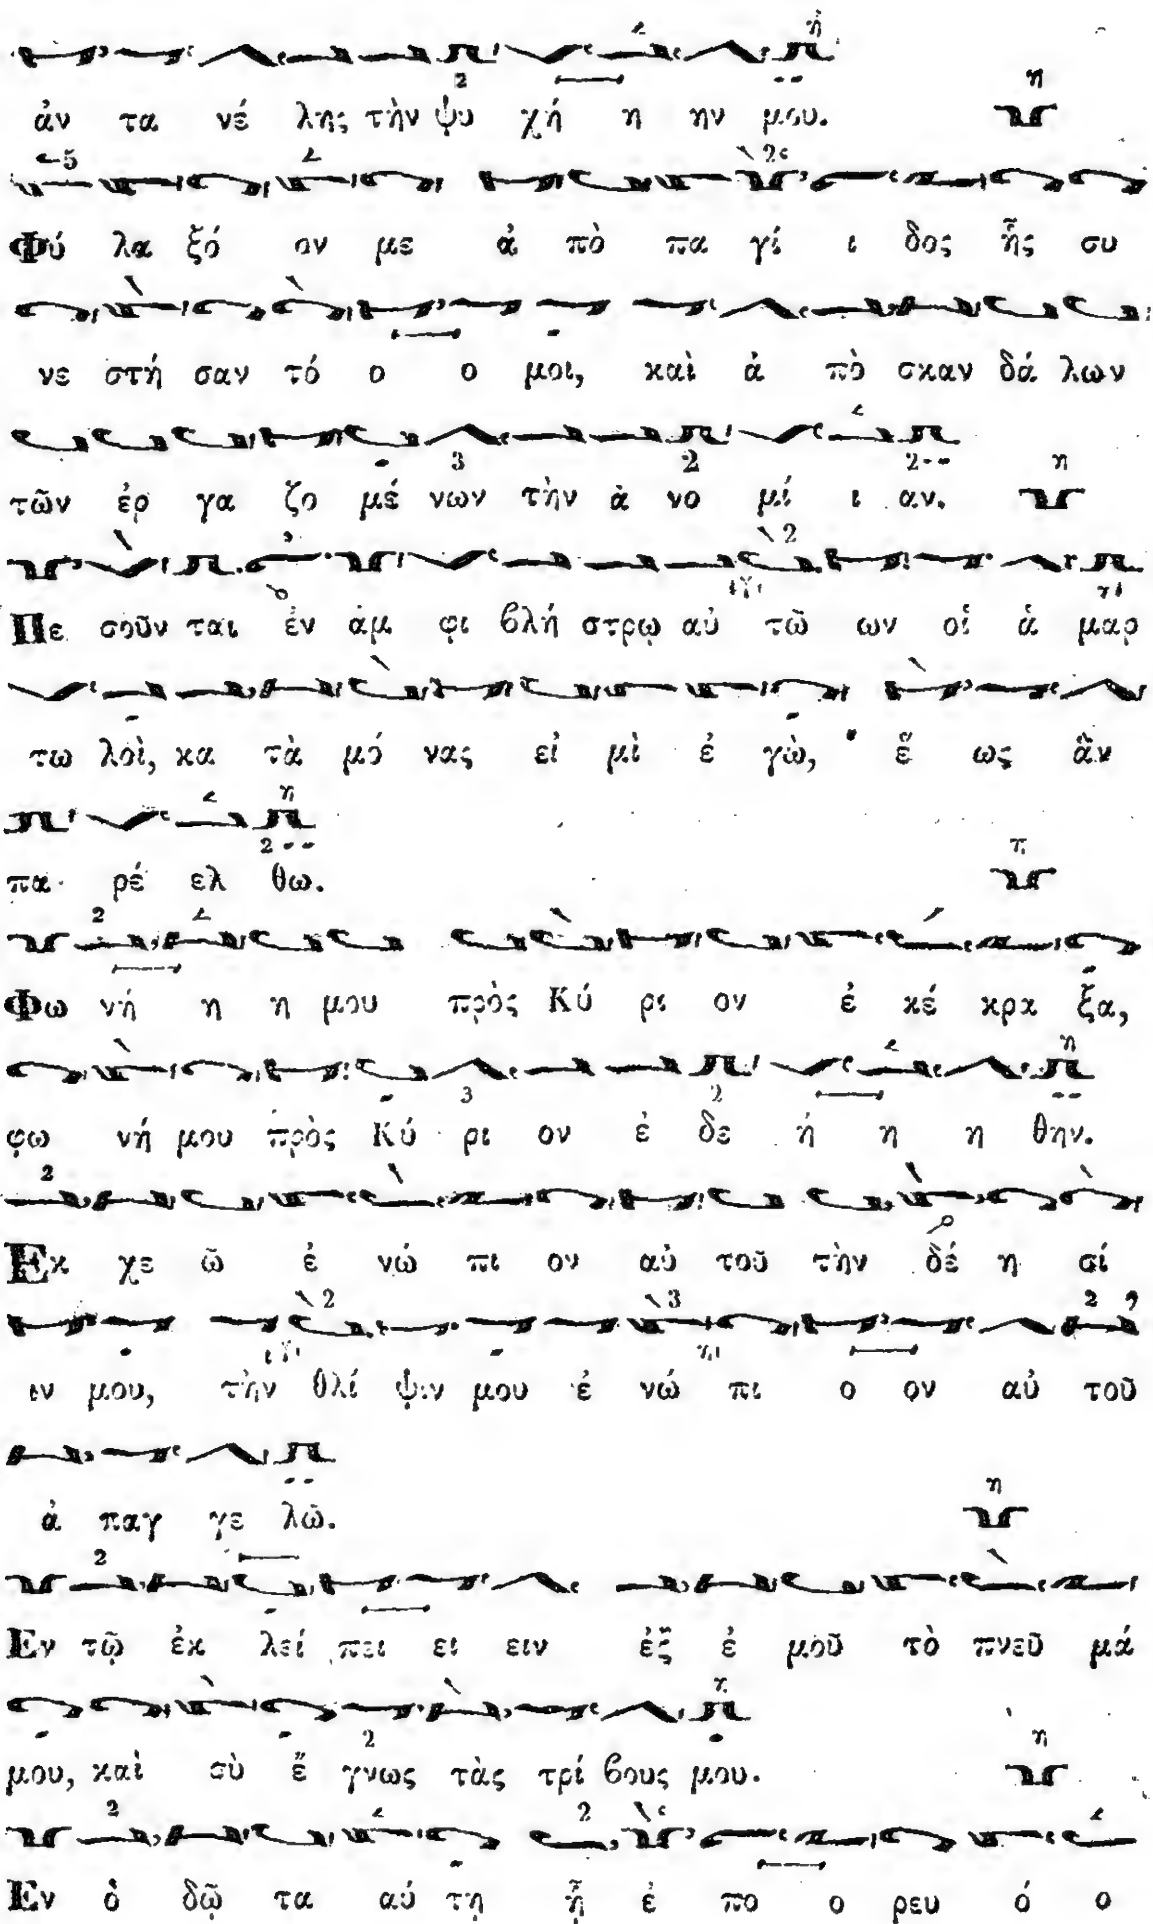 ἀν τα νέ λῃς τὴν ψυ χή η ην μου.
Φύ λα ξό ον με ἀ πὸ πα γί ι δος ἧς συ
νε στή σαν τό ο ο μοι, καὶ ἀ πὸ σκαν δά λων
τῶν ἐρ γα ζο μέ νων τὴν ἀ νο μί ι αν.
Πε σοῦν ται ἐν ἀμ φι βλή στρῳ αὐ τῶ ων οἱ ἁ μαρ
τω λοὶ, κα τὰ μό νας εἰ μὶ ἐ γὼ, ἕ ως ἂν
πα ρέ ελ θω.
Φω νή η η μου πρὸς Κύ ρι ον ἐ κέ κρα ξα,
φω νή μου πρὸς Κύ ρι ον ἐ δε ή η η θην.
Εκ χε ῶ ἐ νώ πι ον αὐ τοῦ τὴν δέ η σί
ιν μου, τὴν θλί ψιν μου ἐ νώ πι ο ον αὐ τοῦ
ἀ παγ γε λῶ.
Εν τῷ ἐκ λεί πει ει ειν ἐξ ἐ μοῦ τὸ πνεῦ μά
μου, καὶ σὺ ἔ γνως τὰς τρί βους μου.
Εν ὁ δῷ τα αύ τῃ ᾗ ἐ πο ο ρευ ό ο